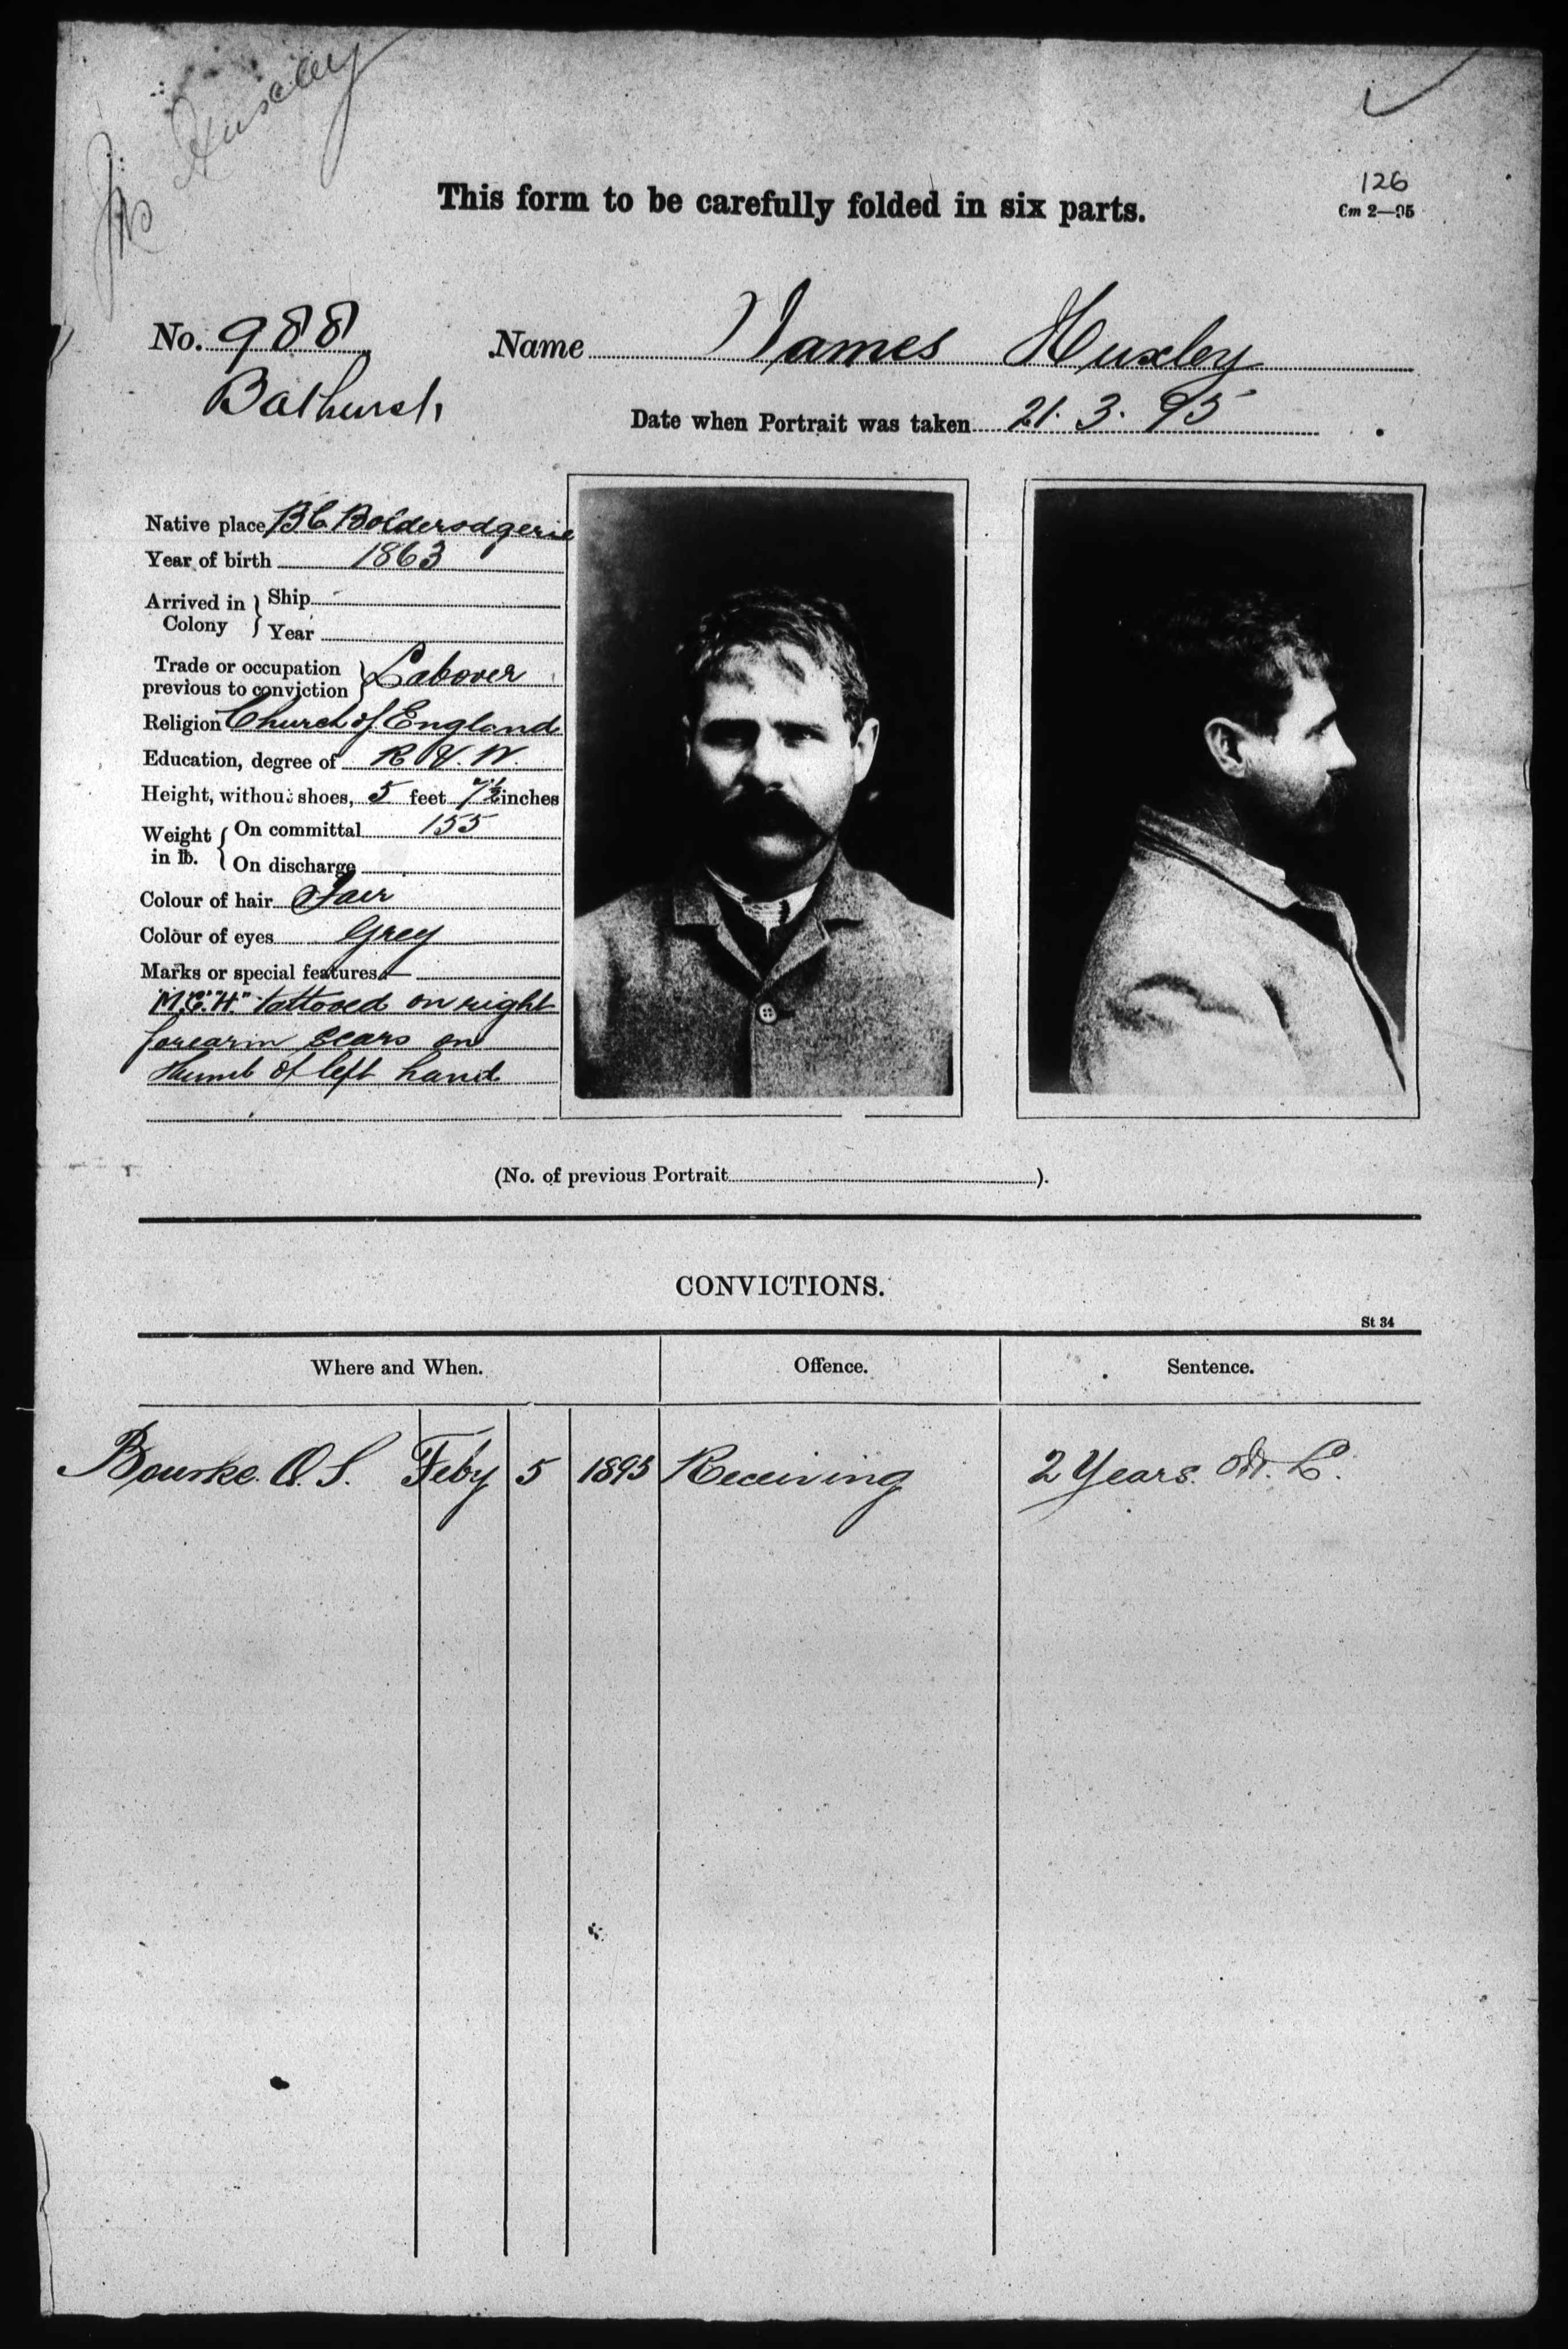 Jas Huxley
This form to be carefully folded in six parts.
126
6m 2—95
No. 988 Name James Huxley
Bathurst
Date when Portrait was taken 21. 3. 95
Native place BC Bolderodgerie
Year of birth 1863
Arrived in Colony } Ship
Year
Trade or occupation previous to conviction } Laborer
Religion Church of England
Education, degree of R & W.
Height, without shoes, 5 feet 7½ inches
Weight in lb. { On committal 155
On discharge
Colour of hair Fair
Colour of eyes Grey
Marks or special features:—
"M.E.H." tattooed on right
forearm scars on
thumb of left hand
(No. of previous Portrait ).
CONVICTIONS.
St 34
Where and When. Offence. Sentence.
Bourke Q.S. Feby 5 1895 Receiving 2 Years L.